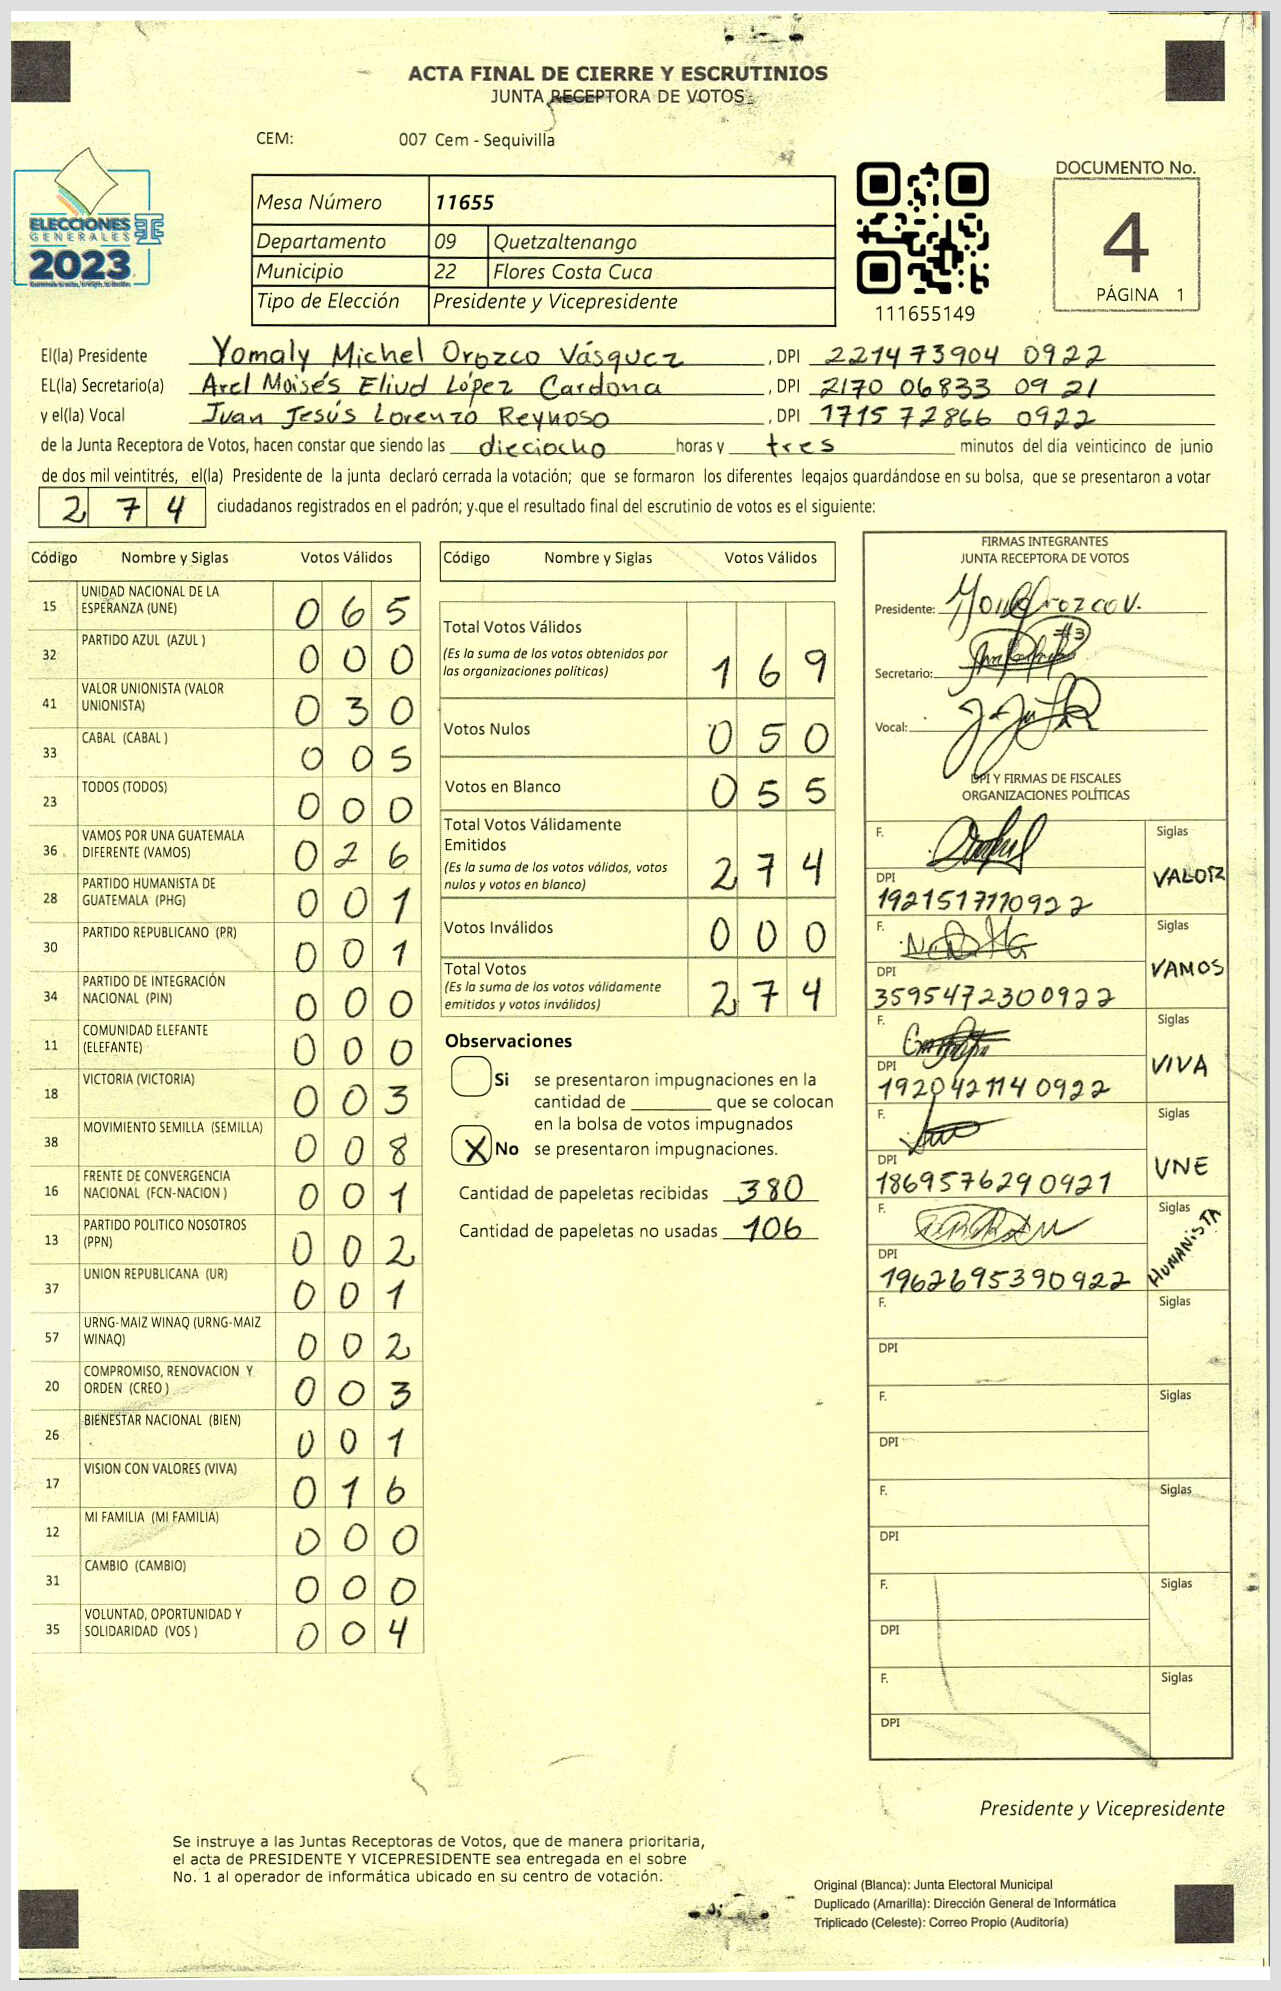 ACTA FINAL DE CIERRE Y ESCRUTINIOS
JUNTA RECEPTORA DE VOTOS
CEM: 007 Cem - Sequivilla
ELECCIONES
GENERALES
2023
Mesa Número 11655
Departamento 09 Quetzaltenango
Municipio 22 Flores Costa Cuca
Tipo de Elección Presidente y Vicepresidente
111655149
DOCUMENTO No.
4
PÁGINA 1
El(la) Presidente Yomaly Michel Orozco Vásquez , DPI 221473904 0922
EL(la) Secretario(a) Axel Moisés Eliud López Cardona , DPI 2170 06833 09 21
y el(la) Vocal Juan Jesús Lorenzo Reynoso , DPI 171572866 0922
de la Junta Receptora de Votos, hacen constar que siendo las dieciocho horas y tres minutos del día veinticinco de junio
de dos mil veintitrés, el(la) Presidente de la junta declaró cerrada la votación; que se formaron los diferentes legajos guardándose en su bolsa, que se presentaron a votar
2 7 4 ciudadanos registrados en el padrón; y que el resultado final del escrutinio de votos es el siguiente:
Código Nombre y Siglas Votos Válidos
15 UNIDAD NACIONAL DE LA
ESPERANZA (UNE) 0 6 5
32 PARTIDO AZUL (AZUL ) 0 0 0
41 VALOR UNIONISTA (VALOR
UNIONISTA) 0 3 0
33 CABAL (CABAL ) 0 0 5
23 TODOS (TODOS) 0 0 0
36 VAMOS POR UNA GUATEMALA
DIFERENTE (VAMOS) 0 2 6
28 PARTIDO HUMANISTA DE
GUATEMALA (PHG) 0 0 1
30 PARTIDO REPUBLICANO (PR) 0 0 1
34 PARTIDO DE INTEGRACIÓN
NACIONAL (PIN) 0 0 0
11 COMUNIDAD ELEFANTE
(ELEFANTE) 0 0 0
18 VICTORIA (VICTORIA) 0 0 3
38 MOVIMIENTO SEMILLA (SEMILLA) 0 0 8
16 FRENTE DE CONVERGENCIA
NACIONAL (FCN-NACION ) 0 0 1
13 PARTIDO POLITICO NOSOTROS
(PPN) 0 0 2
37 UNION REPUBLICANA (UR) 0 0 1
57 URNG-MAIZ WINAQ (URNG-MAIZ
WINAQ) 0 0 2
20 COMPROMISO, RENOVACION Y
ORDEN (CREO ) 0 0 3
26 BIENESTAR NACIONAL (BIEN) 0 0 1
17 VISION CON VALORES (VIVA) 0 1 6
12 MI FAMILIA (MI FAMILIA) 0 0 0
31 CAMBIO (CAMBIO) 0 0 0
35 VOLUNTAD, OPORTUNIDAD Y
SOLIDARIDAD (VOS ) 0 0 4
Código Nombre y Siglas Votos Válidos
Total Votos Válidos
(Es la suma de los votos obtenidos por
las organizaciones políticas) 1 6 9
Votos Nulos 0 5 0
Votos en Blanco 0 5 5
Total Votos Válidamente
Emitidos
(Es la suma de los votos válidos, votos
nulos y votos en blanco) 2 7 4
Votos Inválidos 0 0 0
Total Votos
(Es la suma de los votos válidamente
emitidos y votos inválidos) 2 7 4
Observaciones
Si se presentaron impugnaciones en la
cantidad de ________ que se colocan
en la bolsa de votos impugnados
X No se presentaron impugnaciones.
Cantidad de papeletas recibidas 380
Cantidad de papeletas no usadas 106
FIRMAS INTEGRANTES
JUNTA RECEPTORA DE VOTOS
Presidente:
Secretario:
Vocal:
DPI Y FIRMAS DE FISCALES
ORGANIZACIONES POLÍTICAS
F. Siglas
VALOR
DPI
1921517110922
F. Siglas
VAMOS
DPI
3595472300922
F. Siglas
VIVA
DPI
1920421140922
F. Siglas
UNE
DPI
1869576290921
F. Siglas
HUMANISTA
DPI
1962695390922
F. Siglas
DPI
F. Siglas
DPI
F. Siglas
DPI
F. Siglas
DPI
F. Siglas
DPI
Presidente y Vicepresidente
Se instruye a las Juntas Receptoras de Votos, que de manera prioritaria,
el acta de PRESIDENTE Y VICEPRESIDENTE sea entregada en el sobre
No. 1 al operador de informática ubicado en su centro de votación.
Original (Blanca): Junta Electoral Municipal
Duplicado (Amarilla): Dirección General de Informática
Triplicado (Celeste): Correo Propio (Auditoría)